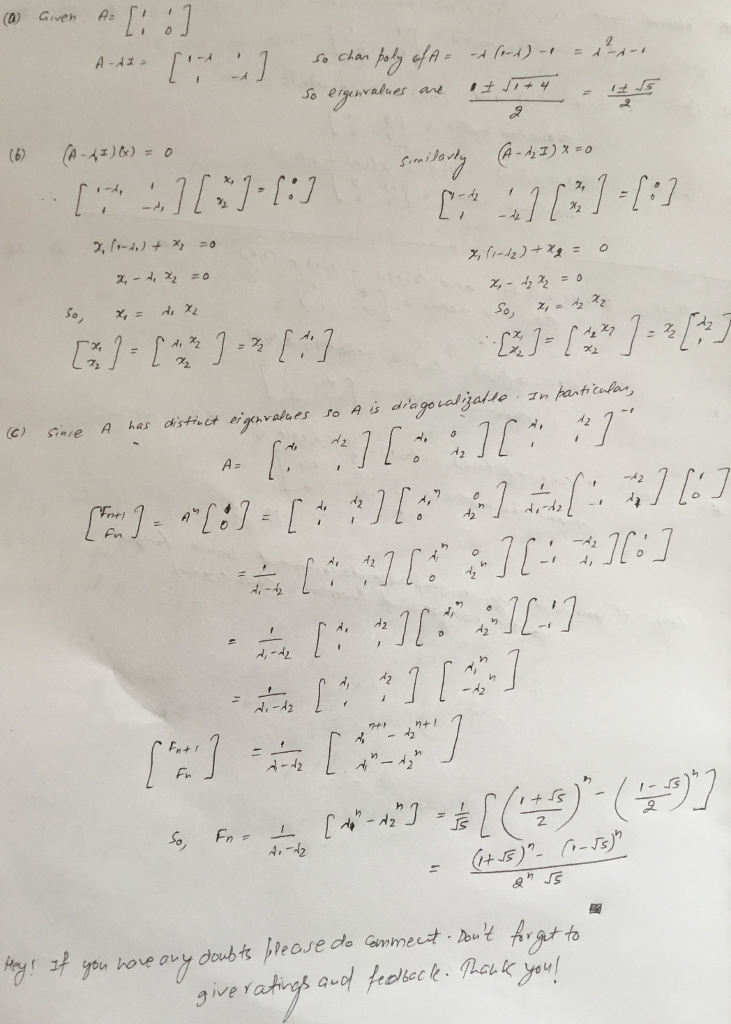 (a) Given A = [1 1; 1 0]
A-λI = [1-λ 1; 1 -λ] So char poly of A = -λ(1-λ) -1 = λ²-λ-1
So eigenvalues are (1 ± √(1+4))/2 = (1±√5)/2
(b) (A-λ₁I)(x) = 0 Similarly (A-λ₂I)x = 0
∴ [1-λ₁ 1; 1 -λ₁] [x₁; x₂] = [0; 0] [1-λ₂ 1; 1 -λ₂] [x₁; x₂] = [0; 0]
x₁(1-λ₁) + x₂ = 0 x₁(1-λ₂) + x₂ = 0
x₁ - λ₁x₂ = 0 x₁ - λ₂x₂ = 0
So, x₁ = λ₁x₂ So, x₁ = λ₂x₂
[x₁; x₂] = [λ₁x₂; x₂] = x₂ [λ₁; 1] ∴ [x₁; x₂] = [λ₂x₂; x₂] = x₂ [λ₂; 1]
(c) Since A has distinct eigenvalues so A is diagonalizable. In particular,
A = [λ₁ λ₂; 1 1] [λ₁ 0; 0 λ₂] [λ₁ λ₂; 1 1]⁻¹
[Fn+1; Fn] = Aⁿ [1; 0] = [λ₁ λ₂; 1 1] [λ₁ⁿ 0; 0 λ₂ⁿ] 1/(λ₁-λ₂) [1 -λ₂; -1 λ₁] [1; 0]
= 1/(λ₁-λ₂) [λ₁ λ₂; 1 1] [λ₁ⁿ 0; 0 λ₂ⁿ] [1 -λ₂; -1 λ₁] [1; 0]
= 1/(λ₁-λ₂) [λ₁ λ₂; 1 1] [λ₁ⁿ 0; 0 λ₂ⁿ] [1; -1]
= 1/(λ₁-λ₂) [λ₁ λ₂; 1 1] [λ₁ⁿ; -λ₂ⁿ]
[Fn+1; Fn] = 1/(λ₁-λ₂) [λ₁ⁿ⁺¹ - λ₂ⁿ⁺¹; λ₁ⁿ - λ₂ⁿ]
So, Fn = 1/(λ₁-λ₂) [λ₁ⁿ - λ₂ⁿ] = 1/√5 [((1+√5)/2)ⁿ - ((1-√5)/2)ⁿ]
= ((1+√5)ⁿ - (1-√5)ⁿ)/(2ⁿ √5)
Hey! If you have any doubts please do comment. Don't forget to
give ratings and feedback. Thank you!